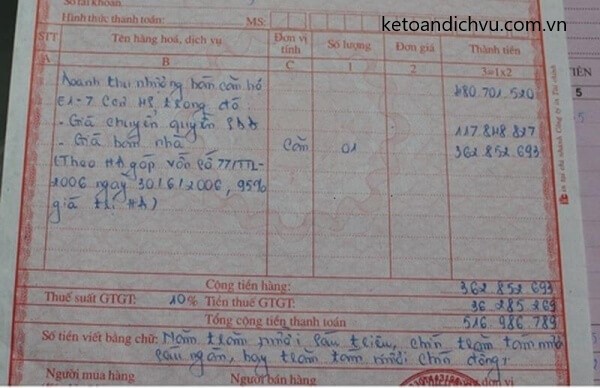 ketoandichvu.com.vn
Số tài khoản
Hình thức thanh toán: MS:
STT Tên hàng hoá, dịch vụ Đơn vị tính Số lượng Đơn giá Thành tiền
A B C 1 2 3=1x2
Doanh thu nhượng bán căn hộ 480.701.520
E1-7 trong đó
- Giá chuyển quyền 117.848.827
- Giá bán nhà Căn 01 362.852.693
(Theo HĐ góp vốn số 77/TTL-
2006 ngày 30/6/2006, 95%
giá trị HĐ)
Cộng tiền hàng: 362 852 693
Thuế suất GTGT: 10% Tiền thuế GTGT: 36 285 269
Tổng cộng tiền thanh toán 516.986.789
Số tiền viết bằng chữ: Năm trăm mười sáu triệu, chín trăm tám mươi
sáu ngàn, bảy trăm tám mươi chín đồng
Người mua hàng Người bán hàng
TIỀN
5